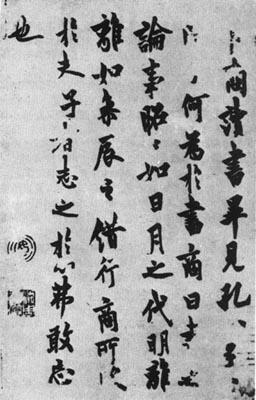 商讀書畢見孔〻子
何為於書商曰書之
論事昭〻如日月之代明離
離如參辰之錯行商所
於夫子志之於心弗敢忘
也